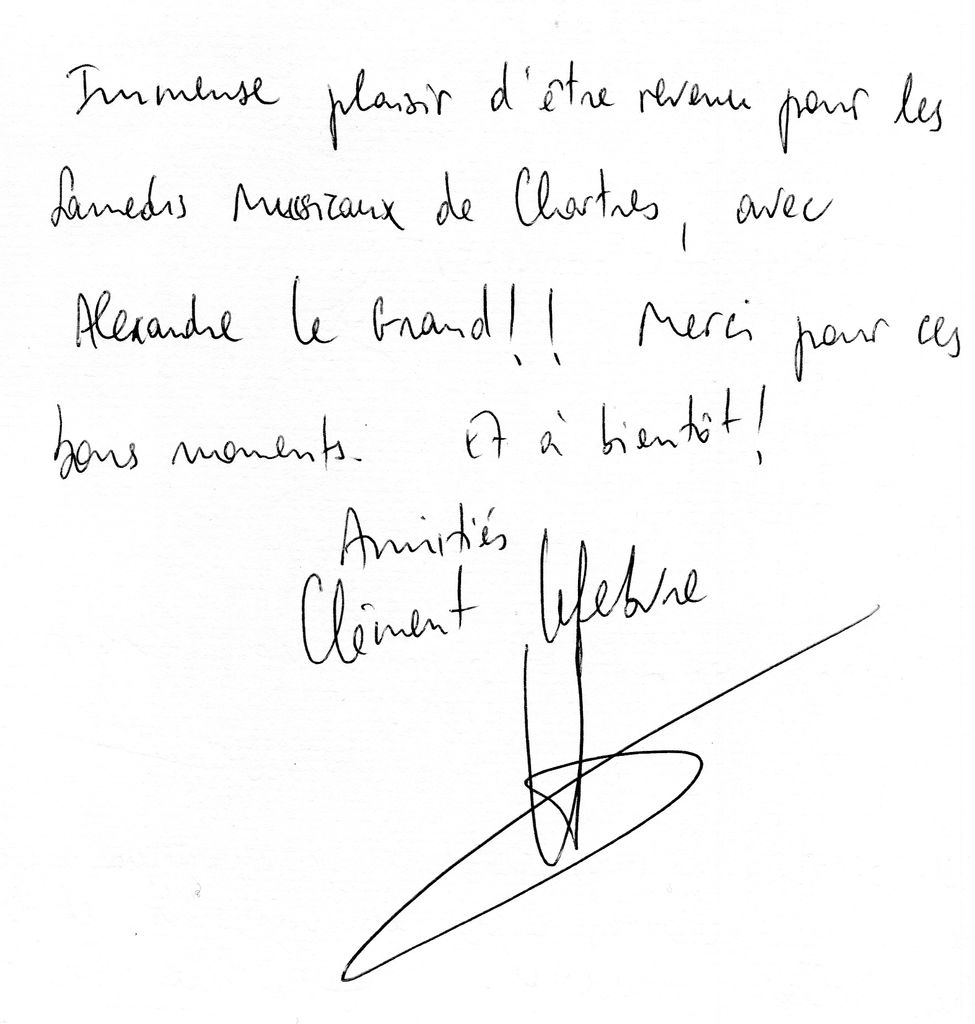 Immense plaisir d'être revenu pour les
Samedis Musicaux de Chartres, avec
Alexandre le Grand!! Merci pour ces
bons moments. Et à bientôt!
Amitiés
Clément Lefebvre